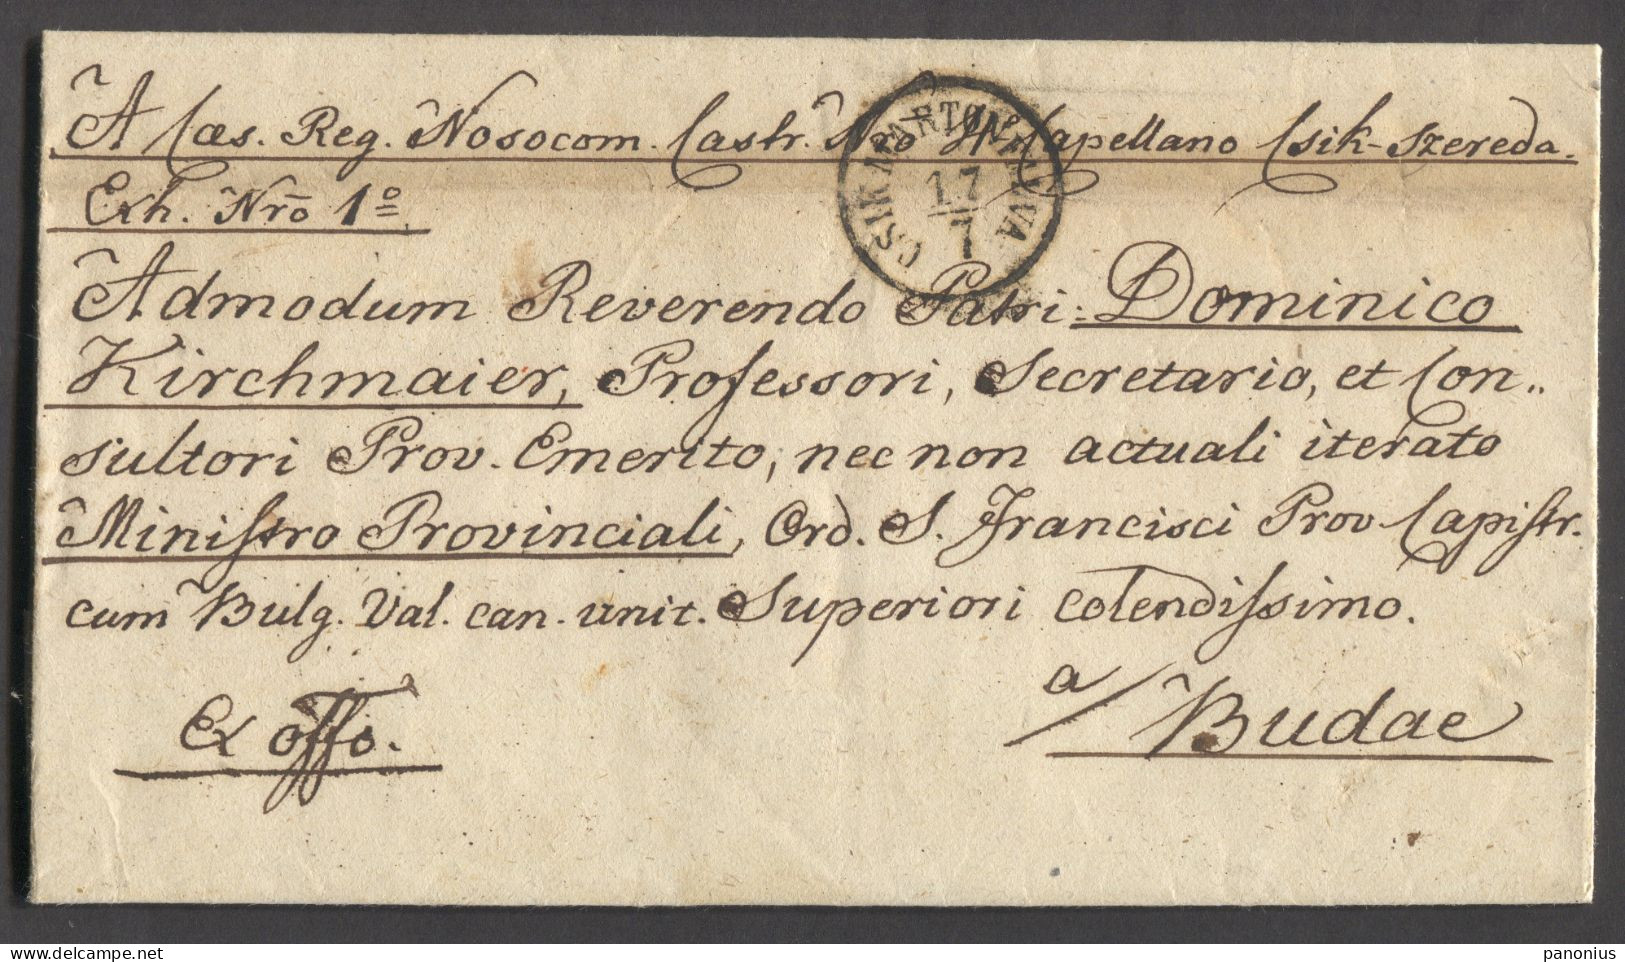 A Caes. Reg. Nosocom. Castr. Nro Capellano Csik-Szereda.
Exh. Nro 1º
CSIK MARTONFALVA
17
7
Admodum Reverendo Patri Dominico
Kirchmaier, Professori, Secretario, et Con„
sultori Prov. Emerito, nec non actuali iterato
Ministro Provinciali, Ord. S. Francisci Prov Capistr.
cum Bulg. Val. can. unit. Superiori colendissimo.
Ex offo.
a/ Budae
panonius
delcampe.net